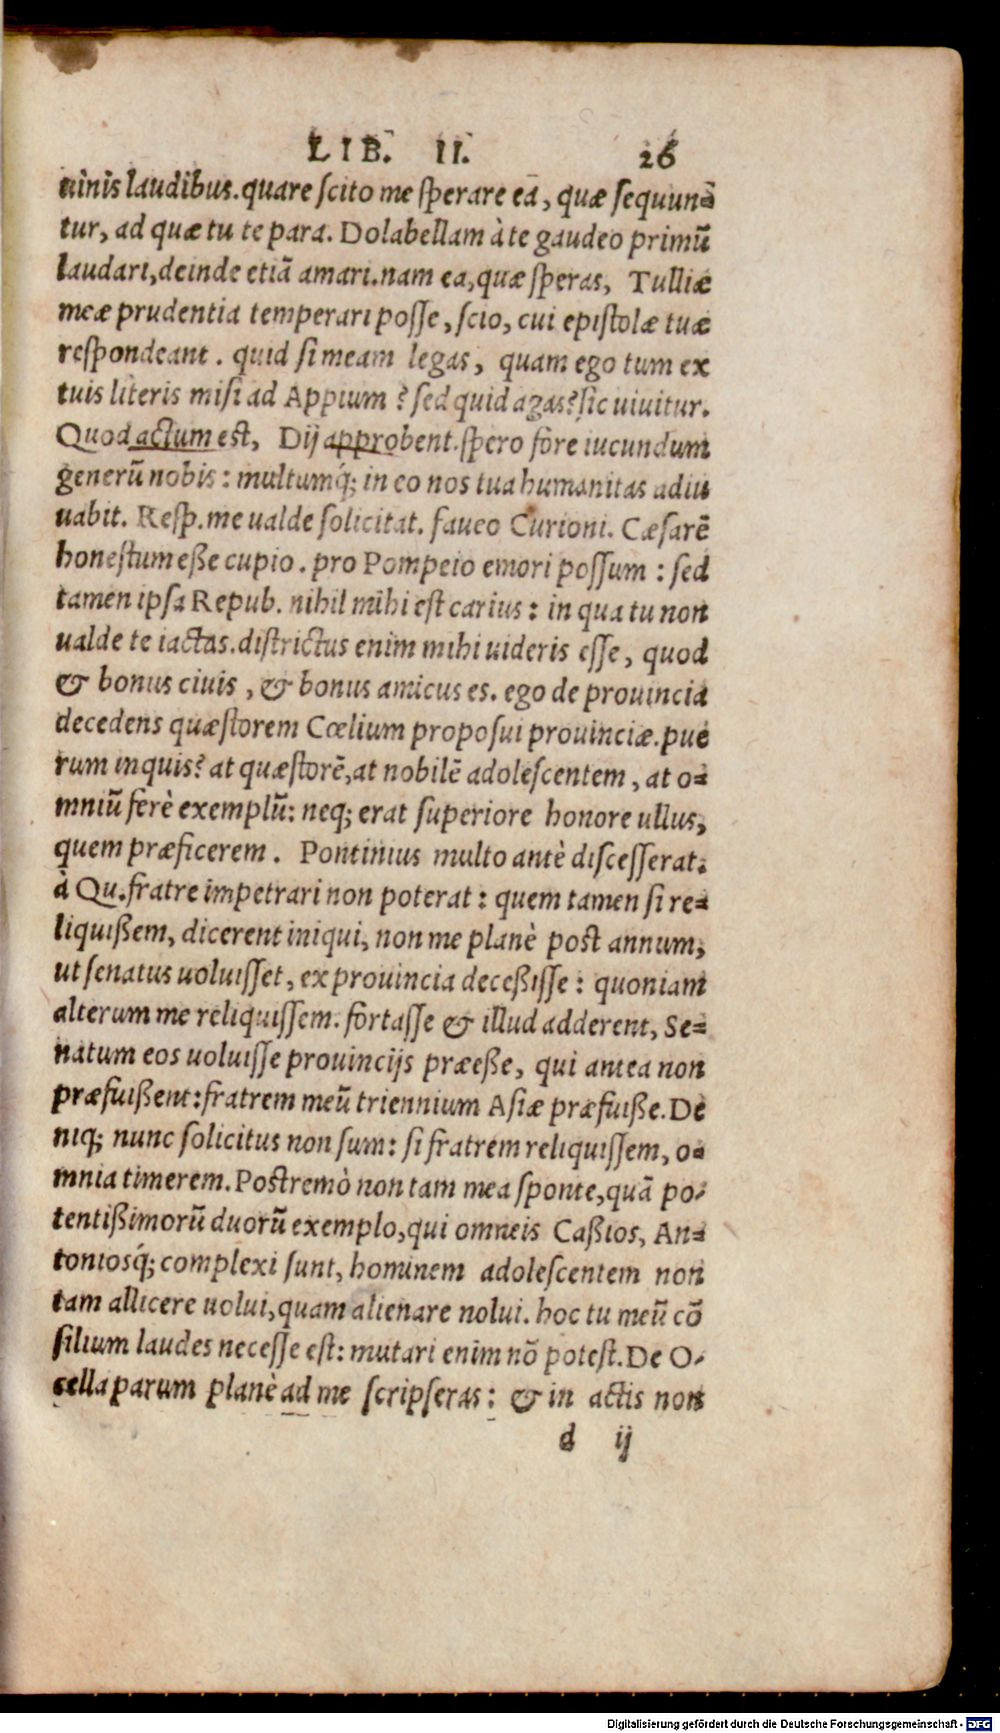 LIB. II. 26
uinis laudibus. quare scito me sperare eā, quæ sequun=
tur, ad quæ tu te para. Dolabellam à te gaudeo primū
laudari, deinde etiā amari. nam ea, quæ speras, Tulliæ
meæ prudentia temperari posse, scio, cui epistolæ tuæ
respondeant. quid si meam legas, quam ego tum ex
tuis literis misi ad Appium? sed quid agas? sic uiuitur.
Quod actum est, Dij approbent. spero fore iucundum
generū nobis: multumq́; in eo nos tua humanitas adiu
uabit. Resp. me ualde solicitat. faueo Curioni. Cæsarē
honestum eße cupio. pro Pompeio emori possum: sed
tamen ipsa Repub. nihil mihi est carius: in qua tu non
ualde te iactas. districtus enim mihi uideris esse, quod
& bonus ciuis, & bonus amicus es. ego de prouincia
decedens quæstorem Cœlium proposui prouinciæ. pue
rum inquis? at quæstorē, at nobilē adolescentem, at o=
mniū ferè exemplū: neq; erat superiore honore ullus,
quem præficerem. Pontinius multo antè discesserat.
à Qu. fratre impetrari non poterat: quem tamen si re=
liquißem, dicerent iniqui, non me planè post annum,
ut senatus uoluisset, ex prouincia deceßisse: quoniam
alterum me reliquissem. fortasse & illud adderent, Se=
natum eos uoluisse prouincijs præeße, qui antea non
præfuißent: fratrem meū triennium Asiæ præfuiße. De
niq; nunc solicitus non sum: si fratrem reliquissem, o=
mnia timerem. Postremò non tam mea sponte, quā po-
tentißimorū duorū exemplo, qui omneis Caßios, An=
toniosq́; complexi sunt, hominem adolescentem non
tam allicere uolui, quam alienare nolui. hoc tu meū cō
silium laudes necesse est: mutari enim nō potest. De O-
cella parum planè ad me scripseras: & in actis non
d ij
Digitalisierung gefördert durch die Deutsche Forschungsgemeinschaft - DFG